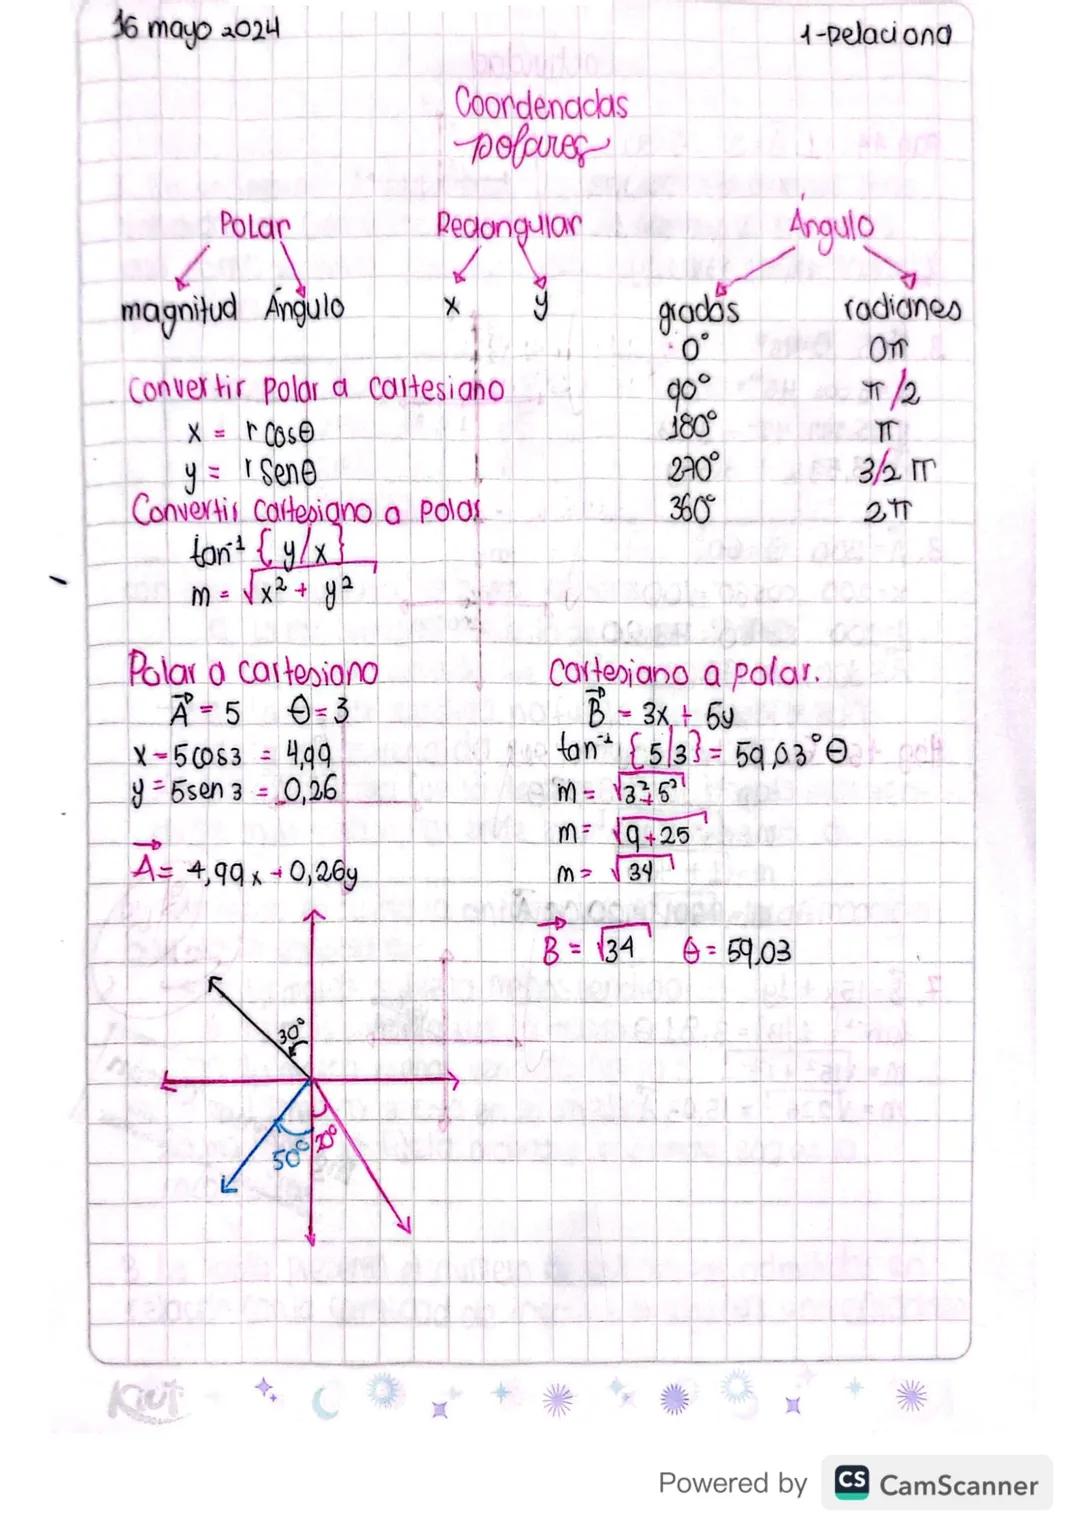 16 mayo 2024
1-Relaciona
Coordenadas
polares
Polar
Rectangular
Ángulo
magnitud Ángulo
x y
grados radianes
0° 0π
90° π/2
180° π
270° 3/2 π
360° 2π
Convertir polar a cartesiano
x = r Cosθ
y = r Senθ
Convertir cartesiano a polar
tan⁻¹ {y/x}
m = √x² + y²
Polar a cartesiano
A = 5 θ = 3
x = 5 cos 3 = 4,99
y = 5 sen 3 = 0,26
A = 4,99 x + 0,26y
Cartesiano a polar.
B = 3x + 5y
tan⁻¹ {5/3} = 59,03° θ
m = √3²+5²
m = √9+25
m = √34
B = √34 θ = 59,03
30°
50°
20°
Kiut
Powered by CS CamScanner